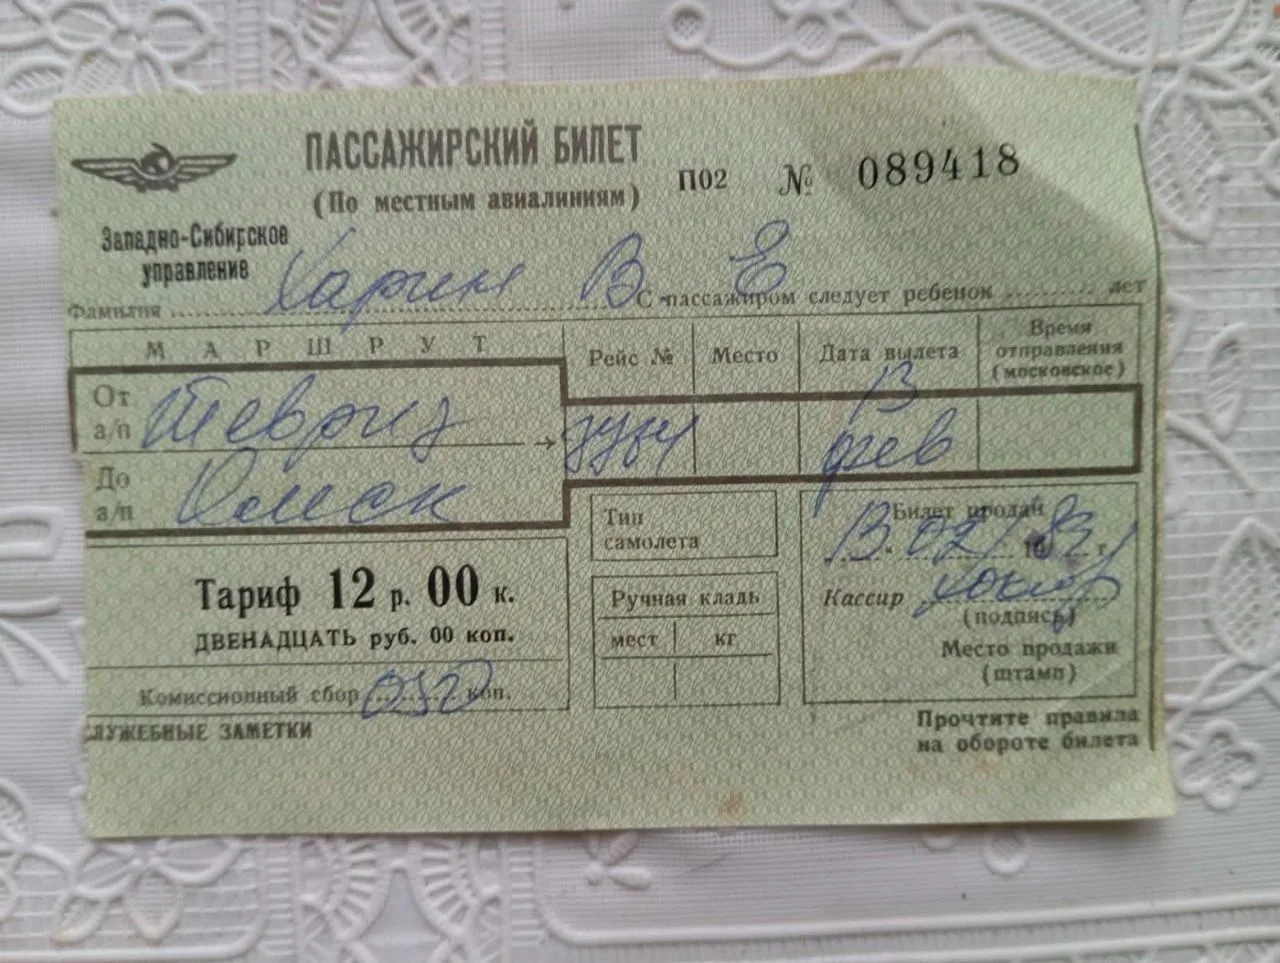 ПАССАЖИРСКИЙ БИЛЕТ
(По местным авиалиниям)
П02 № 089418
Западно-Сибирское
управление
Фамилия Харин В Е С пассажиром следует ребенок лет
МАРШРУТ
Рейс № Место Дата вылета Время отправления (московское)
От а/п Тевриз
13 фев
До а/п Омск
Тип самолета
Билет продан
13 02 1983 г.
Тариф 12 р. 00 к.
ДВЕНАДЦАТЬ руб. 00 коп.
Ручная кладь
мест кг
Кассир
(подпись)
Место продажи
(штамп)
Комиссионный сбор 050 коп.
СЛУЖЕБНЫЕ ЗАМЕТКИ
Прочтите правила
на обороте билета